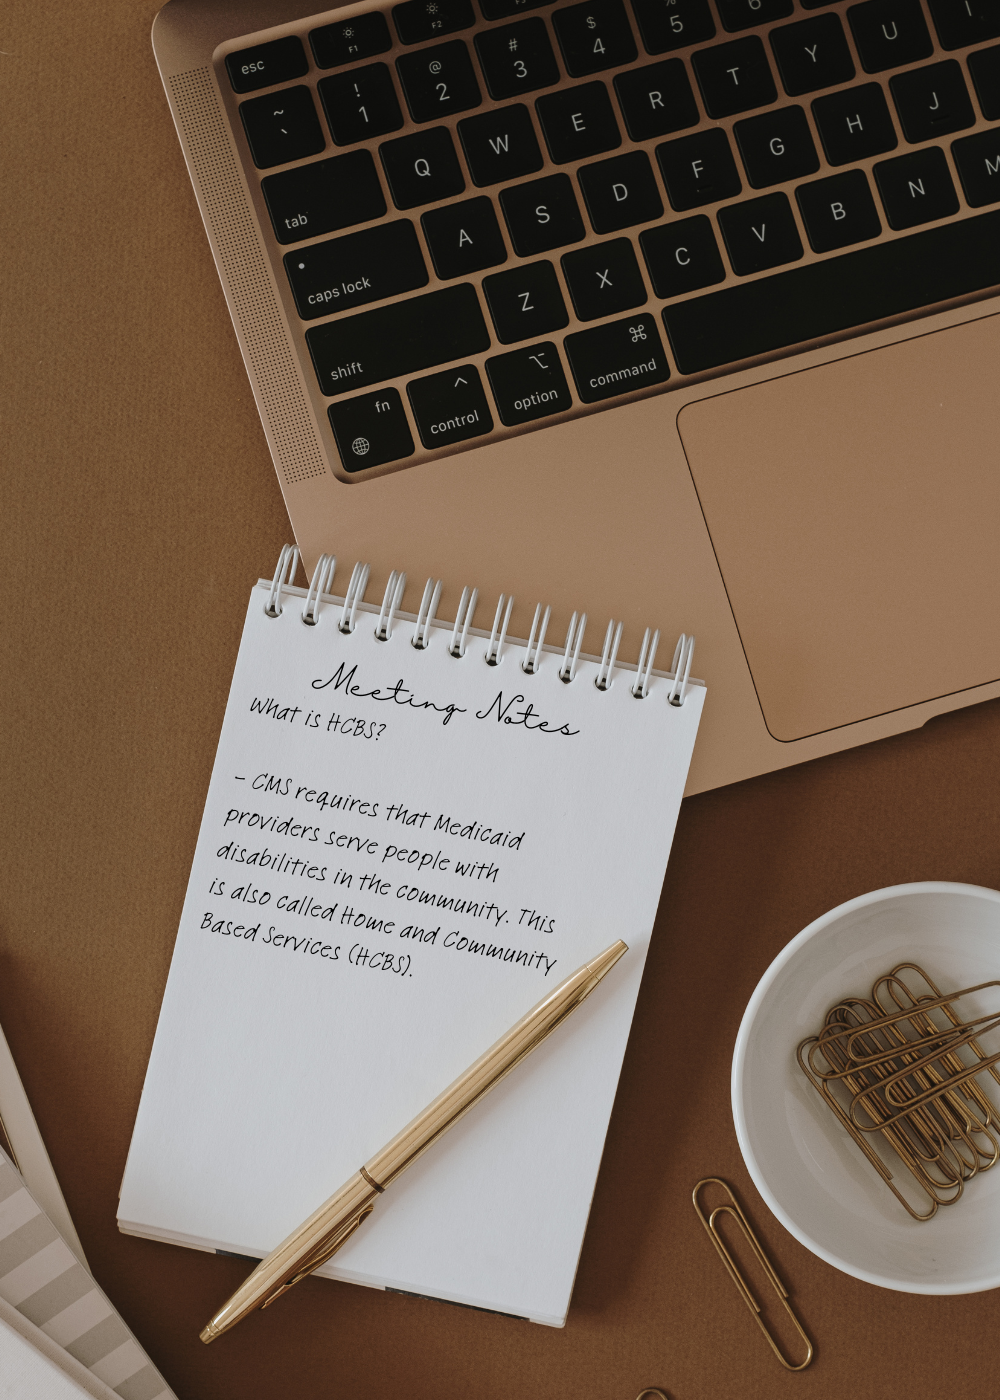 esc
F1
F2
~
`
!
1
@
2
#
3
$
4
%
5
6
tab
Q
W
E
R
T
Y
U
I
caps lock
A
S
D
F
G
H
J
shift
Z
X
C
V
B
N
M
fn
control
option
command
⌘
Meeting Notes
What is HCBS?
- CMS requires that Medicaid
providers serve people with
disabilities in the community. This
is also called Home and Community
Based Services (HCBS).